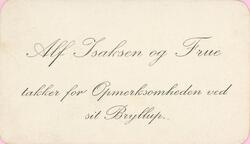 Alf Isaksen og Frue
takker for Opmerksomheden ved
sit Bryllup.